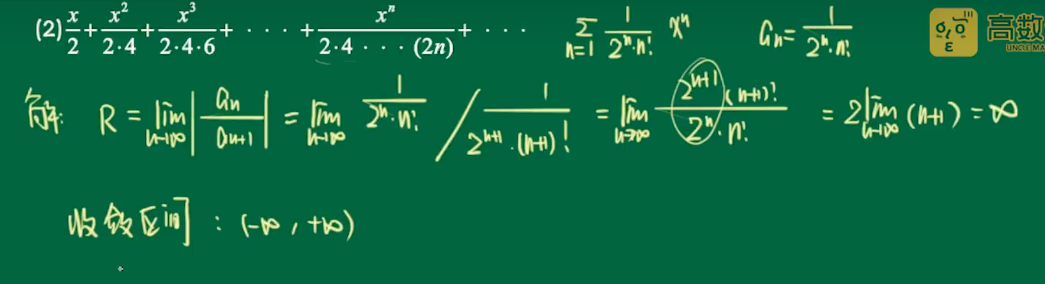 (2) x/2 + x²/(2·4) + x³/(2·4·6) + · · · + xⁿ/(2·4 · · · (2n)) + · · · ∑_{n=1} 1/(2ⁿ·n!) xⁿ aₙ = 1/(2ⁿ·n!) 高数
UNCLE MA
解: R = lim_{n→∞} |aₙ/aₙ₊₁| = lim_{n→∞} 1/(2ⁿ·n!) / 1/(2ⁿ⁺¹·(n+1)!) = lim_{n→∞} 2ⁿ⁺¹·(n+1)!/(2ⁿ·n!) = 2 lim_{n→∞} (n+1) = ∞
收敛区间: (-∞, +∞)